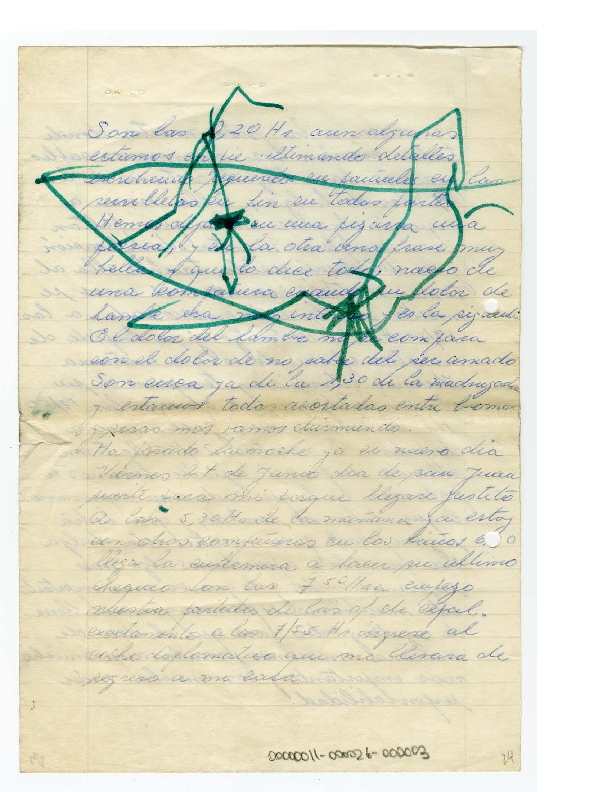 Son las 1,20 Hs aun algunas
estamos en pie ultimando detalles
en pañuelos en las
servilletas en fin en todas partes
Hemos en una pizarra una
poesia, y en la otra una frase muy
bella y que lo dice todo, nacio de
una compañera cuando su dolor de
hambre era muy intenso es la siguiente
El dolor del hambre no compara
con el dolor de no saber del ser amado
Son cerca ya de la 1,30 de la madrugada
y estamos todas acostadas entre bromas
y risas nos vamos durmiendo.
Ha pasado la noche ya es nuevo dia
Viernes 24 de Junio dia de san Juan
llegare justito
A las 5,30 Hs de la mañana ya estoy
con otras compañeras en los baños
llega la enfermera a hacer su ultimo
chequeo son las 7 50 Hs
partida de las of. de cepal.
exactamente a las 7/55 Hs ingrese al
coche diplomatico que me llevara de
regreso a mi casa
00000011-000026-000003
24